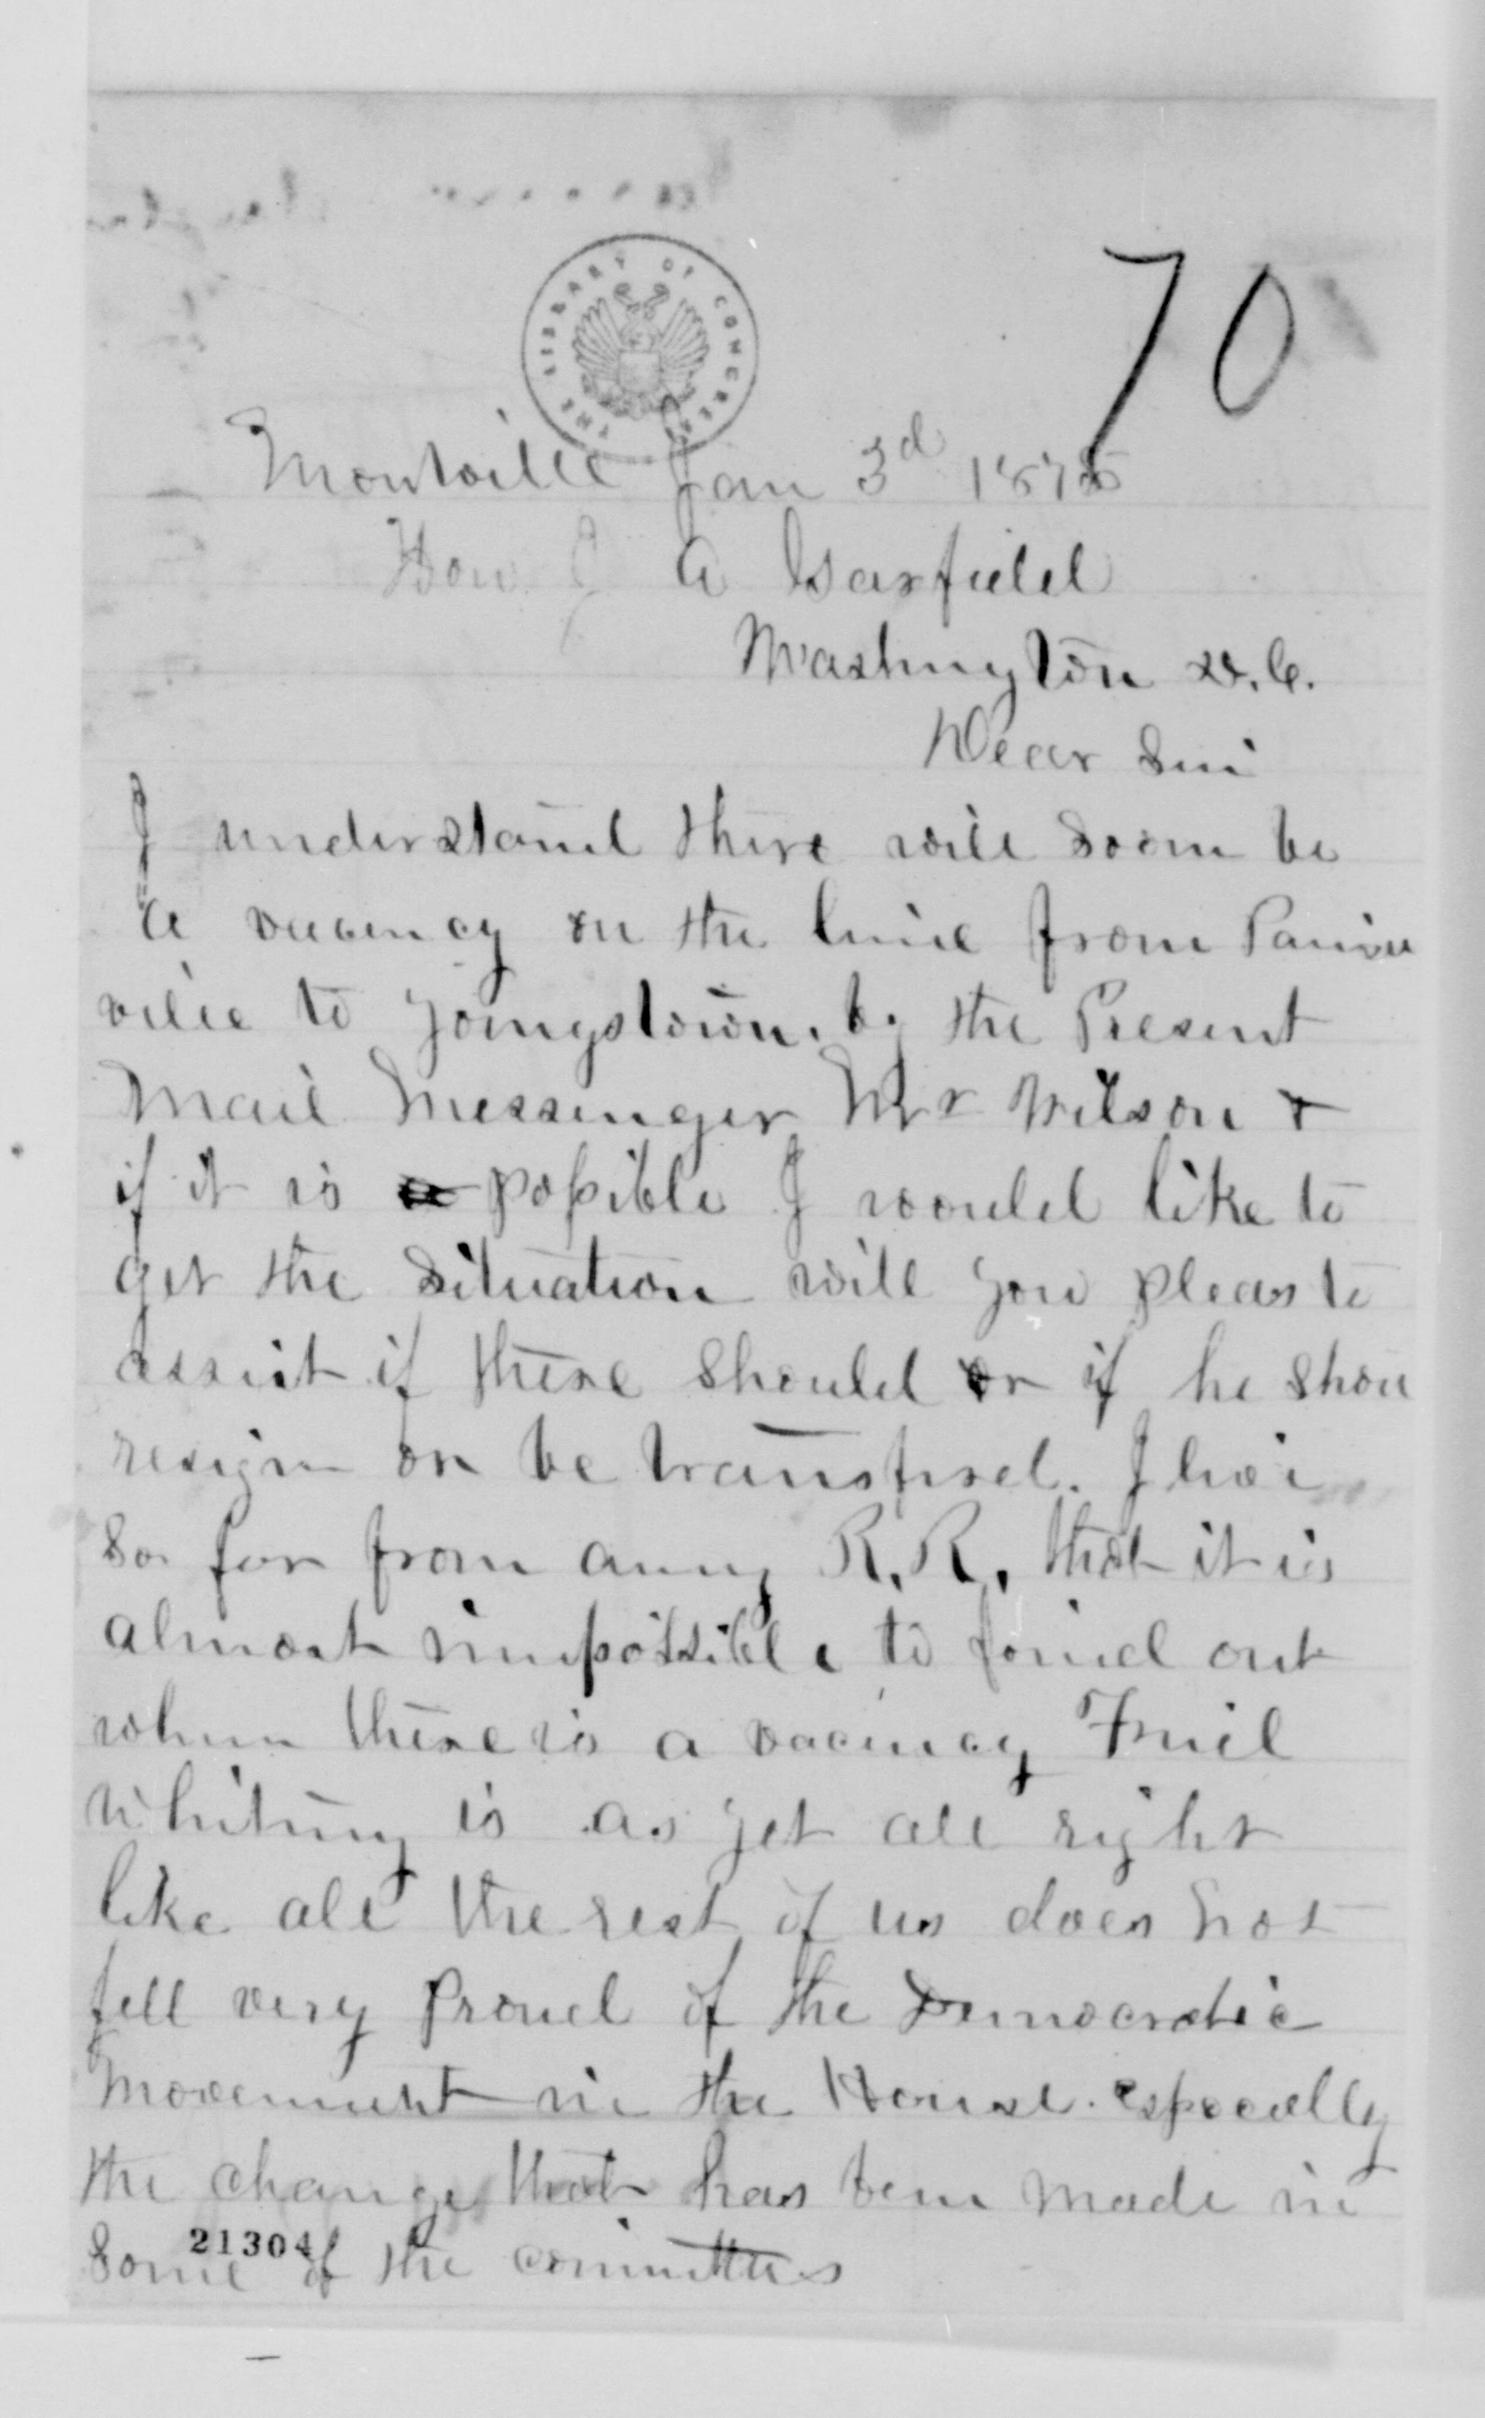 THE LIBRARY OF CONGRESS
70
Montville Jan 3d 187
Hon J A Garfield
Washington D.C.
Dear Sir
I understand there will soon be
a vacency on the line from Paines
ville to Youngstown. by the Present
Mail Messenger Mr Wilson &
if it is a possible I would like to
get the Situation will you pleas to
assist if there should or if he shou
resign or be transfered. I live
so far from anny R.R. that it is
almost impossible to find out
when there is a vacency
Whiting is as yet all right
like all the rest of us does not
fell very Proud of the Democratic
movement in the House especially
the change that has been made in
some of the committees
21304